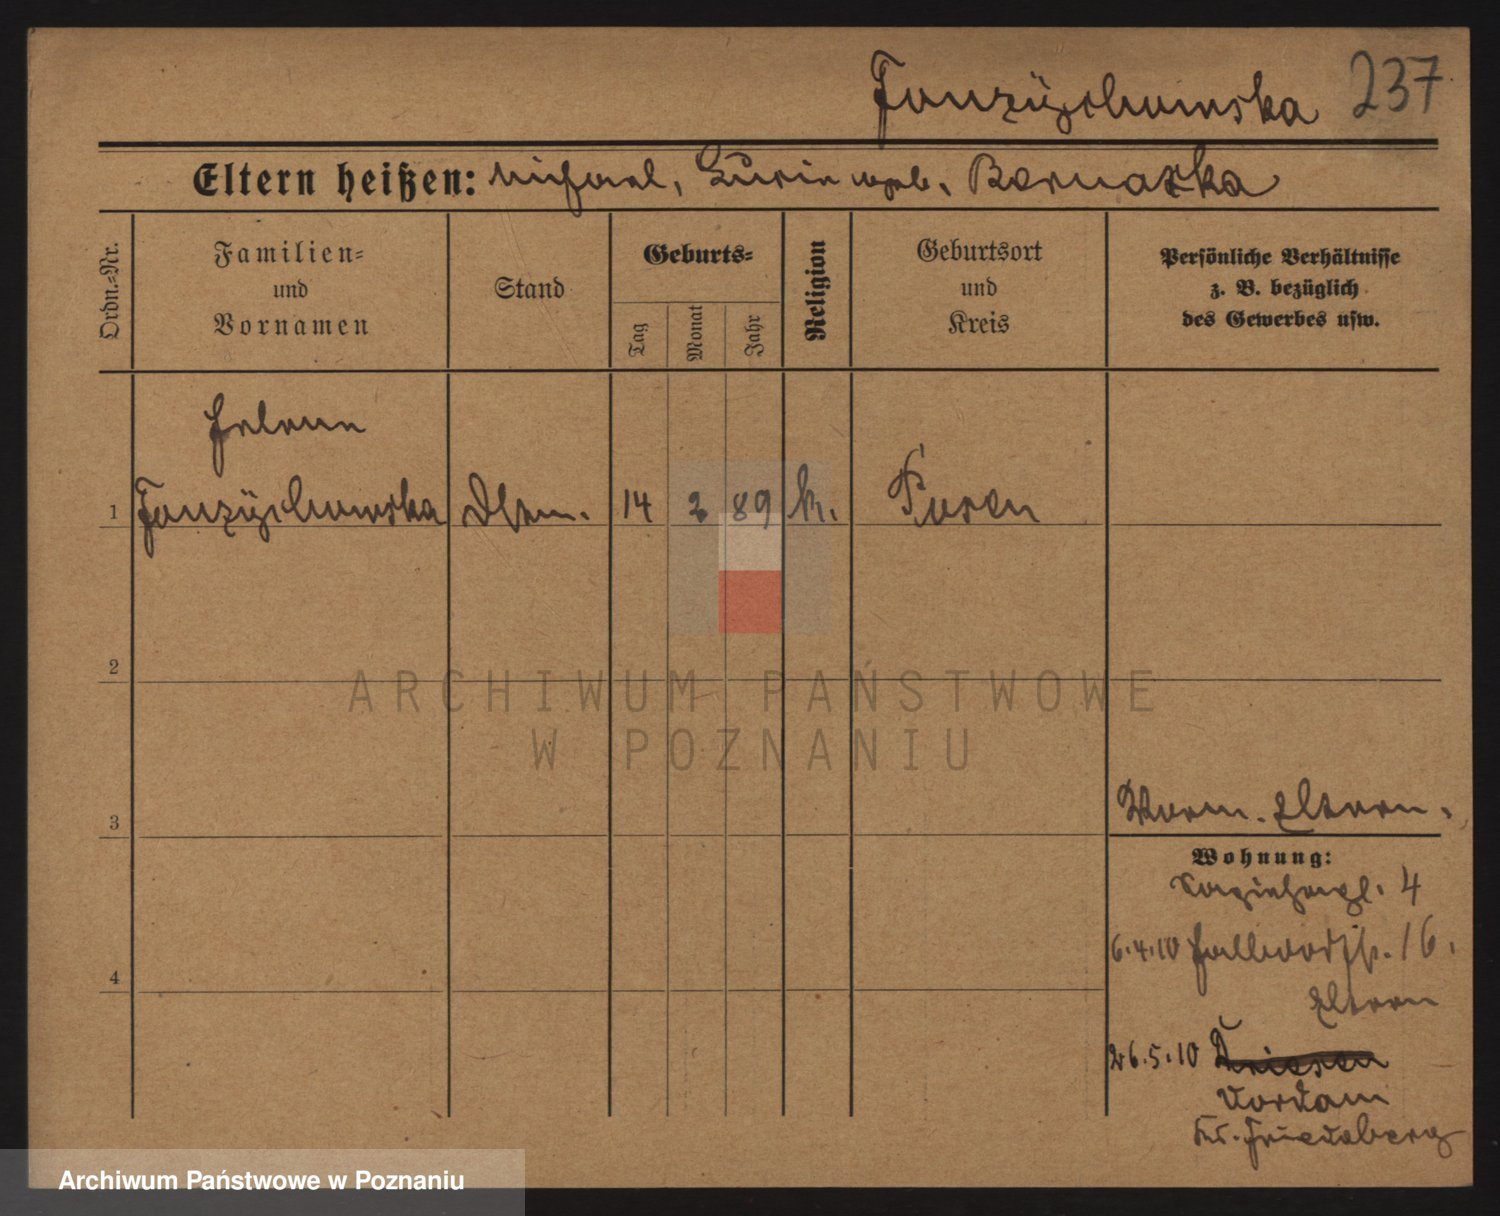 237
Eltern heißen: Michael, Lucie geb. Bernaszka
Ordn.-Nr.
Familien-
und
Vornamen
Stand
Geburts-
Tag
Monat
Jahr
Religion
Geburtsort
und
Kreis
Persönliche Verhältnisse
z. B. bezüglich
des Gewerbes usw.
Helene
1 14 2 89 k. Posen
2
3
4
Vorm. Eltern.
Wohnung:
4
6.4.10 Halldorfstr. 16.
Eltern
26.5.10 Driesen
Vordamm
Kr. Friedeberg
ARCHIWUM PAŃSTWOWE
W POZNANIU
Archiwum Państwowe w Poznaniu